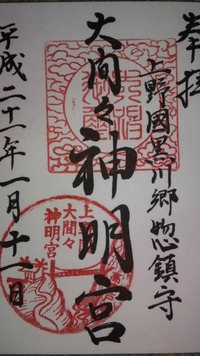 奉拝
上野國黒川郷惣鎮守
大間々神明宮
平成二十一年一月十一日
大間々
神明宮